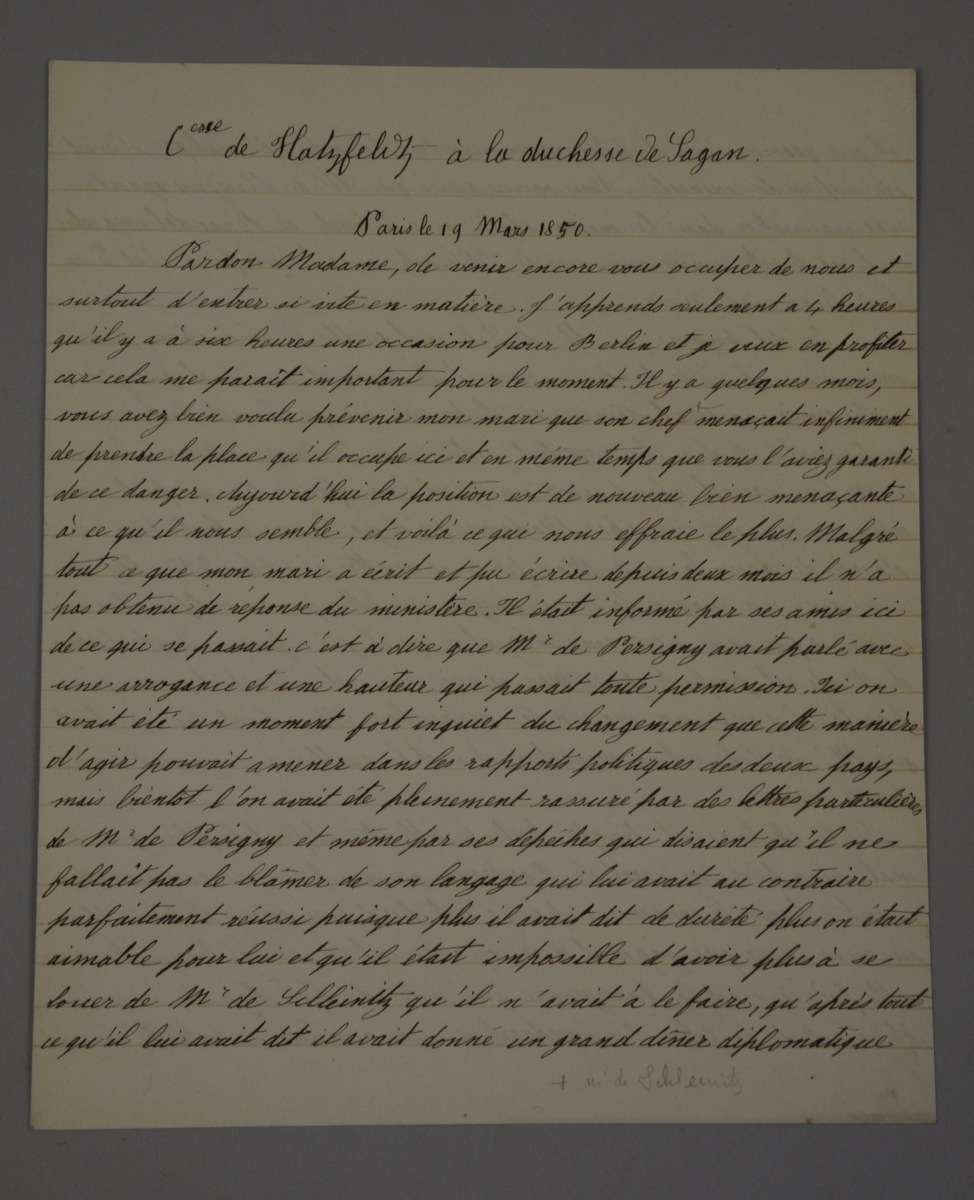 Csse de Hatzfeldt à la duchesse de Sagan.
Paris le 19 Mars 1850.
Pardon Madame, de venir encore vous occuper de nous et
surtout d'entrer si vite en matière. J'apprends seulement a 4 heures
qu'il y a à six heures une occasion pour Berlin et je veux en profiter
car cela me parait important pour le moment. Il y a quelques mois,
vous avez bien voulu prévenir mon mari que son chef menaçait infiniment
de prendre la place qu'il occupe ici et en même temps que vous l'aviez garanti
de ce danger. Aujourd'hui la position est de nouveau bien menaçante
à ce qu'il nous semble, et voilà ce qui nous effraie le plus. Malgré
tout ce que mon mari a écrit et pu écrire depuis deux mois il n'a
pas obtenu de réponse du ministère. Il était informé par ses amis ici
de ce qui se passait. c'est à dire que Mr de Persigny avait parlé avec
une arrogance et une hauteur qui passait toute permission. Ici on
avait été un moment fort inquiet du changement que cette manière
d'agir pouvait amener dans les rapports politiques des deux pays,
mais bientot l'on avait été pleinement rassuré par des lettres particulières
de Mr de Persigny et même par ses dépêches qui disaient qu'il ne
fallait pas le blâmer de son langage qui lui avait au contraire
parfaitement réussi puisque plus il avait dit de dureté plus on était
aimable pour lui et qu'il était impossible d'avoir plus à se
louer de Mr de Schleinitz qu'il n'avait à le faire, qu'après tout
ce qu'il lui avait dit il avait donné un grand dîner diplomatique
+ mr de Schleinitz